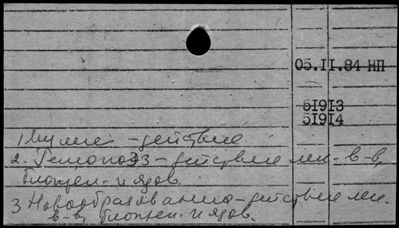 05.II.84 НП
51913
51914
1 - действие
2. Гемопоэз - действие лек. в-в,
биоген. и ядов.
3 Новообразования - действие лек.
в-в, биоген. и ядов.